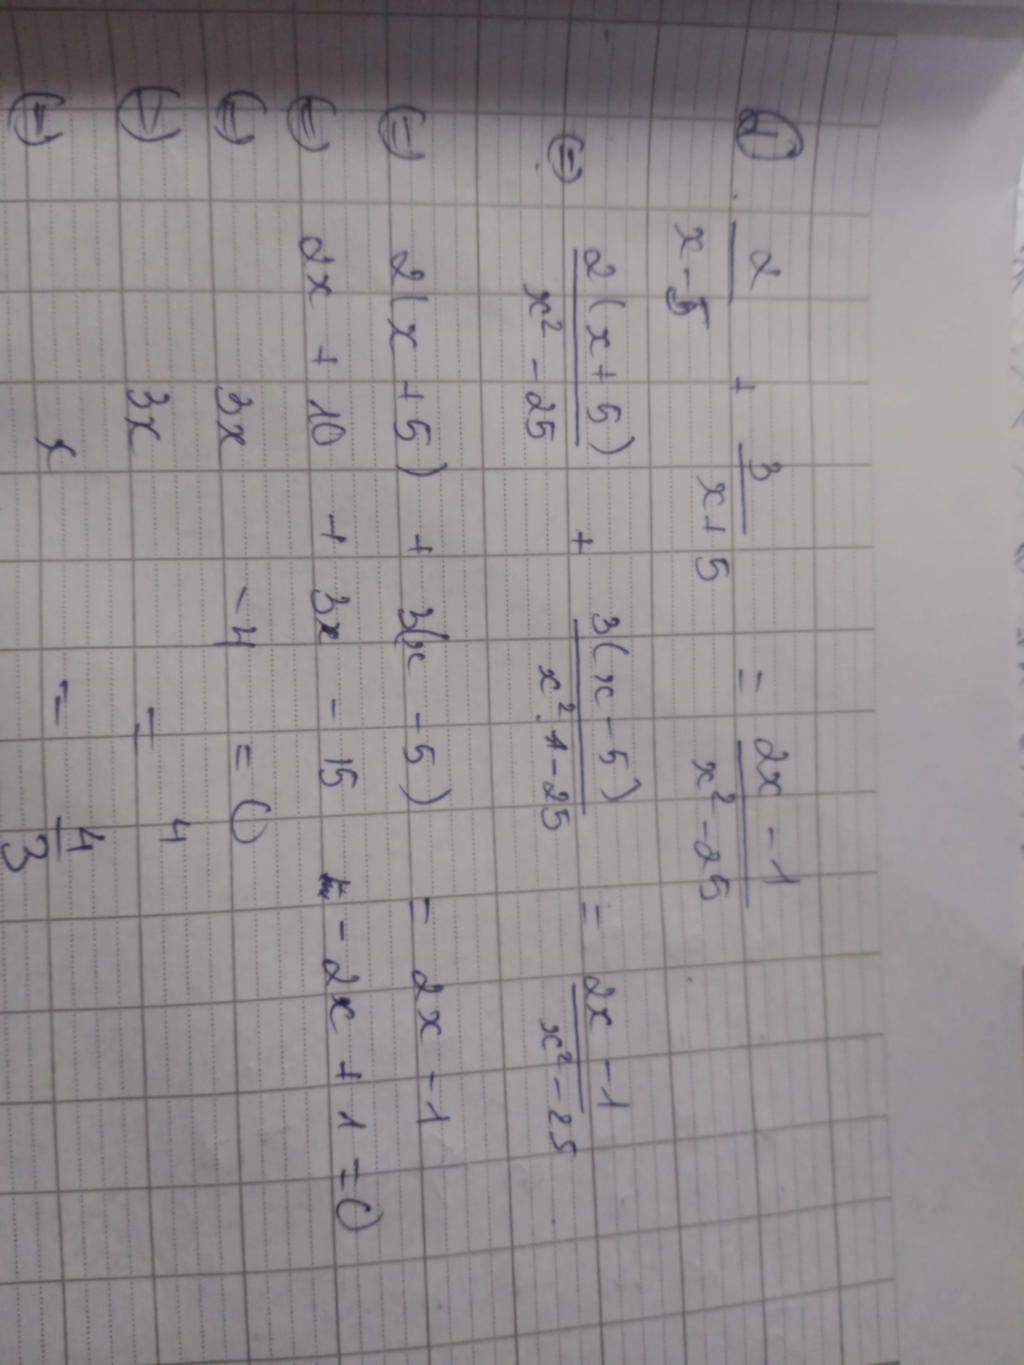 d) 2/(x-5) + 3/(x+5) = (2x-1)/(x²-25)
(=) 2(x+5)/(x²-25) + 3(x-5)/(x²-25) = (2x-1)/(x²-25)
(=) 2(x+5) + 3(x-5) = 2x-1
(=) 2x + 10 + 3x - 15 - 2x + 1 = 0
(=) 3x - 4 = 0
(=) 3x = 4
(=) x = 4/3